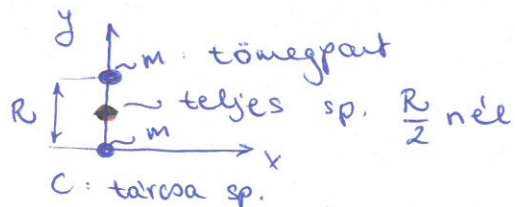 y
m tömegpont
R
teljes sp. R/2 nél
m
x
C: tárcsa sp.